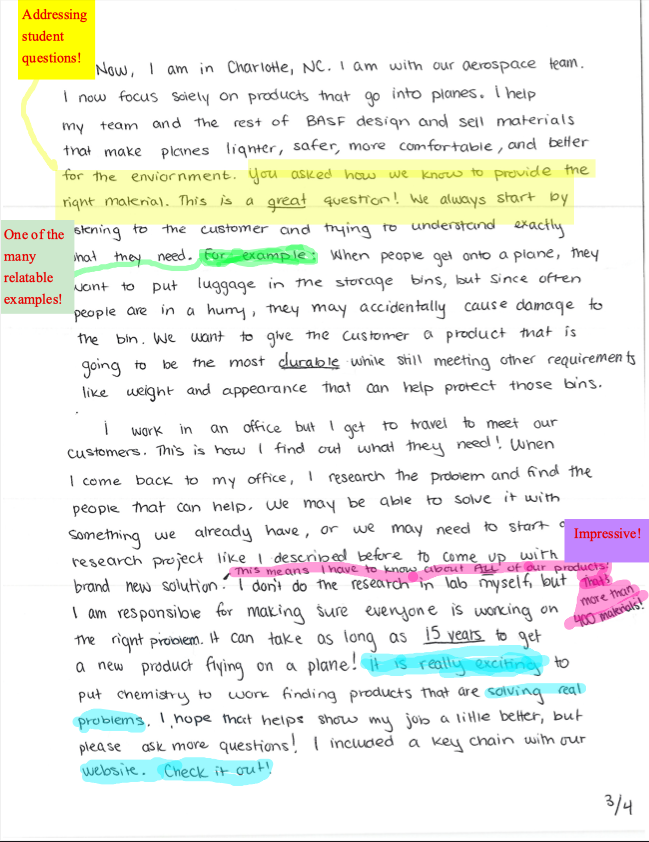 Addressing
student
questions!
Now, I am in Charlotte, NC. I am with our aerospace team.
I now focus solely on products that go into planes. I help
my team and the rest of BASF design and sell materials
that make planes lighter, safer, more comfortable, and better
for the enviornment. You asked how we know to provide the
right material. This is a great question! We always start by
stening to the customer and trying to understand exactly
One of the
many
relatable
examples!
hat they need. For example: When people get onto a plane, they
want to put luggage in the storage bins, but since often
people are in a hurry, they may accidentally cause damage to
the bin. We want to give the customer a product that is
going to be the most durable while still meeting other requirements
like weight and appearance that can help protect those bins.
I work in an office but I get to travel to meet our
customers. This is how I find out what they need! When
I come back to my office, I research the problem and find the
people that can help. We may be able to solve it with
something we already have, or we may need to start
Impressive!
research project like I described before to come up with
This means I have to know about ALL of our products!
That's
more than
400 materials!
brand new solution. I don't do the research in lab myself, but
I am responsible for making sure everyone is working on
the right problem. It can take as long as 15 years to get
a new product flying on a plane! It is really exciting to
put chemistry to work finding products that are solving real
problems. I hope that helps show my job a little better, but
please ask more questions! I included a key chain with our
website. Check it out!
3/4